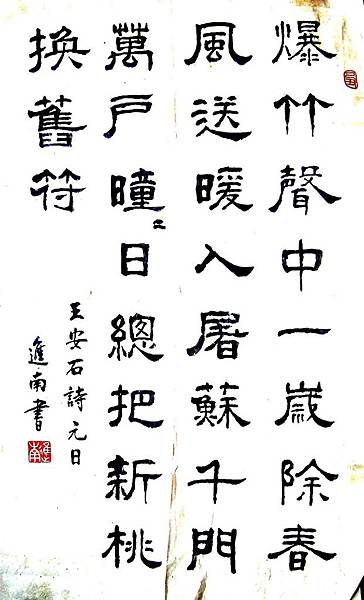 爆竹聲中一歲除春
風送暖入屠蘇千門
萬戶曈〻日總把新桃
換舊符
王安石詩元日
進南書
進南